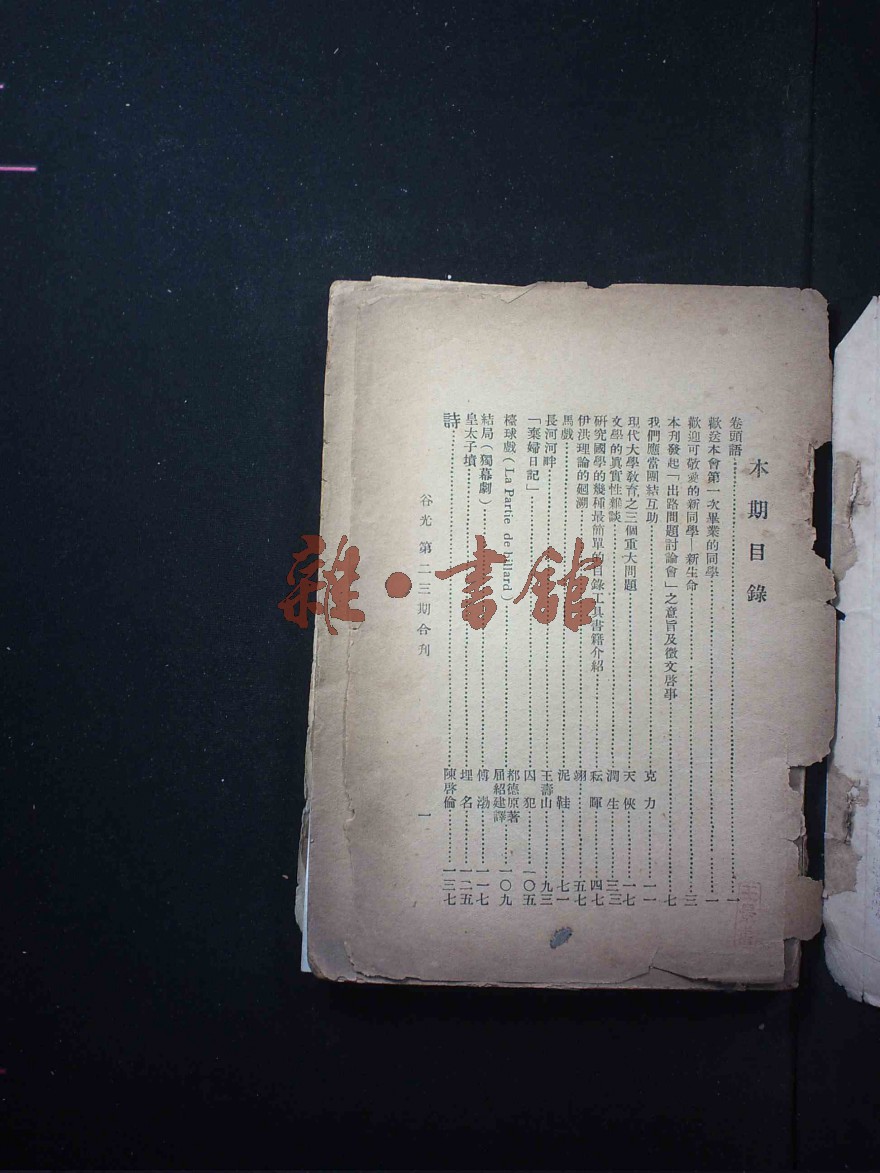 本期目錄
卷頭語……一
歡送本會第一次畢業的同學……一
歡迎可敬愛的新同學—新生命……三
本刊發起「出路問題討論會」之意旨及徵文啓事……七
我們應當團結互助……克力……一一
現代大學教育之三個重大問題……天俠……一七
文學的真實性雜談……潤生……三三
研究國學的幾種最簡單的目錄工具書籍介紹……耘暉……四七
伊洪理論的廻溯……翊……五七
馬戲……泥鞋……七一
長河河畔……王壽山……九三
「棄婦日記」……囚犯……一〇五
檯球戲(La Partie de billard)……都德原著 屆紹建譯……一〇九
結局(獨幕劇)……傅渤……一一七
皇太子墳……埋名……一二五
詩……陳啓倫……一三七
谷光 第二三期合刊
一
雜·書館